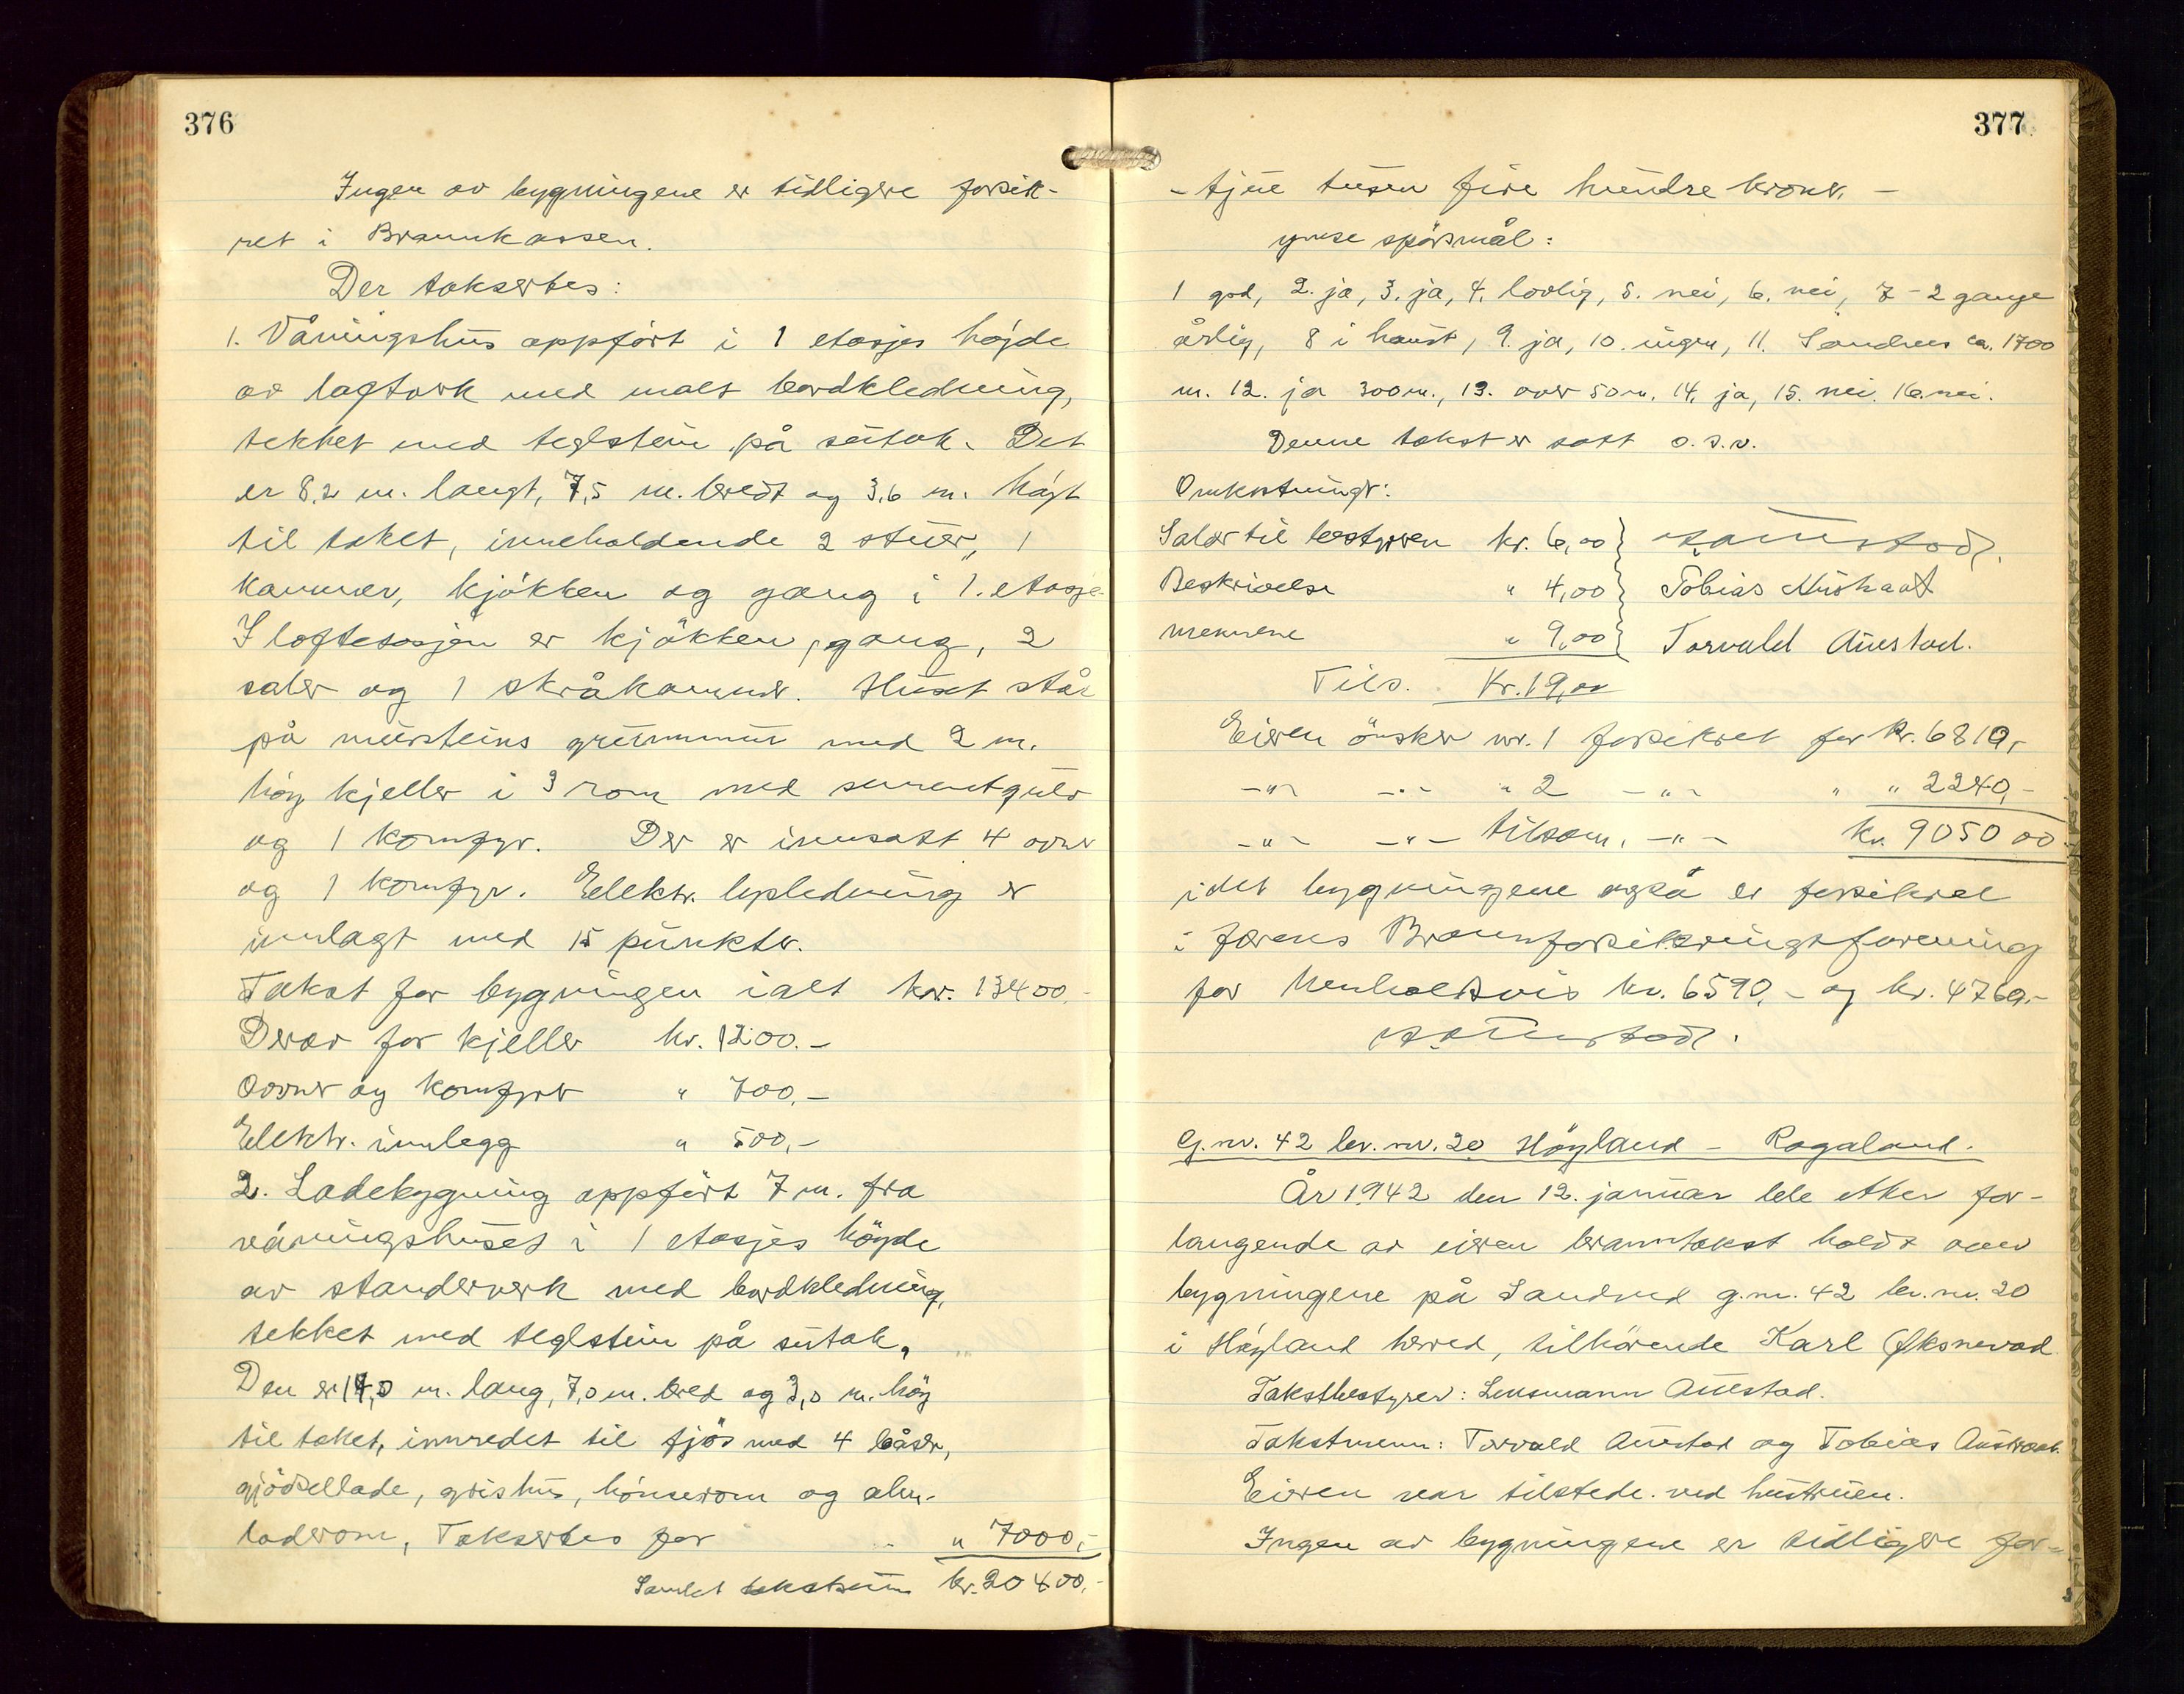 376
Ingen av bygningene er tidligere forsik-
ret i Brannkassen.
Der taksertes:
1. Våningshus oppført i 1 etasjes høyde
av laftverk med malt bordkledning,
tekket med teglstein på sutak. Det
er 8,2 m. langt, 7,5 m. bredt og 3,6 m. høyt
til taket, inneholdende 2 stuer, 1
kammer, kjøkken og gang i 1. etasje.
I loftetasjen er kjøkken, gang, 2
saler og 1 skråkammer. Huset står
på mursteins grunnmur med 2 m.
høy kjeller i 3 rom med sementgulv
og 1 komfyr. Der er innsatt 4 ovner
og 1 komfyr. Elektr. lysledning er
innlagt med 15 punkter.
Takst for bygningen ialt kr. 13400.-
Derav for kjeller kr. 1200.-
Ovner og komfyrer " 700.-
Elektr. innlegg " 500,-
2. Ladebygning oppført 7 m. fra
våningshuset i 1 etasjes høyde
av standerverk med bordkledning,
tekket med teglstein på sutak.
Den er 14,0 m. lang, 7,0 m. bred og 3,0 m. høy
til taket, innredet til fjøs med 4 båser,
gjødsellade, grishus, hønserom og alm.
laderom, Taksertes for " 7000,-
Samlet takstsum kr. 20400,-
377
- tjue tusen fire hundre kroner. -
ymse spørsmål:
1 god, 2. ja, 3. ja, 4. lovlig, 5. nei, 6. nei, 7 - 2 gange
årlig, 8 i haust, 9. ja, 10. ingen, 11. Sandnes ca. 1700
m. 12. ja 300 m., 13. over 50 m. 14. ja, 15. nei. 16. nei.
Denne takst er satt o.s.v.
Omkostninger:
Salær til bestyreren kr. 6,00 } Auestad.
Beskrivelse " 4,00 } Tobias Austraat
mennene " 9,00 } Torvald Auestad.
Tils. Kr. 19,00
Eieren ønsker nr. 1 forsikret for kr. 6810,-
-"- -"- " 2 -"- " " 2240,-
-"- -"- tilsam. -"- kr. 9050 00
idet bygningene også er forsikret
i Jærens Brannforsikringsforening
for henholdsvis kr. 6590,- og kr. 4760.-
Auestad.
G.nr. 42 br. nr. 20 Høyland - Rogaland.
År 1942 den 12. januar ble etter for-
langende av eieren branntakst holdt over
bygningene på Sandved g.nr. 42 br.nr. 20
i Høyland herred, tilhørende Karl Øksnevad
Takstbestyrer: Lensmann Auestad.
Takstmenn: Torvald Auestad og Tobias Austraat.
Eieren var tilstede ved hustruen.
Ingen av bygningene er tidligere for-